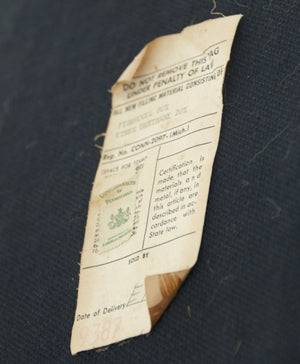 DO NOT REMOVE THIS TAG
UNDER PENALTY OF LAW
ALL NEW FILLING MATERIAL CONSISTING OF
Reg. No. CONN-2097-(Mich.)
SPACE FOR STAMP
COMMONWEALTH
OF
PENNSYLVANIA
Certification is
made that the
materials and
metal, if any, in
this article are
described in ac-
cordance with
State law.
SOLD BY
Date of Delivery